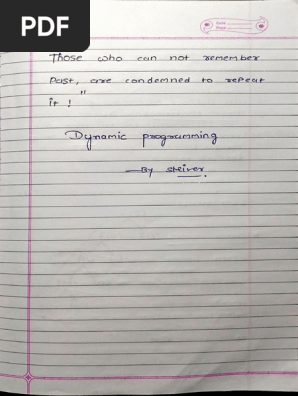 PDF
Those who can not remember
Past, are condemned to repeat
it !"
Dynamic programming
—By striver.